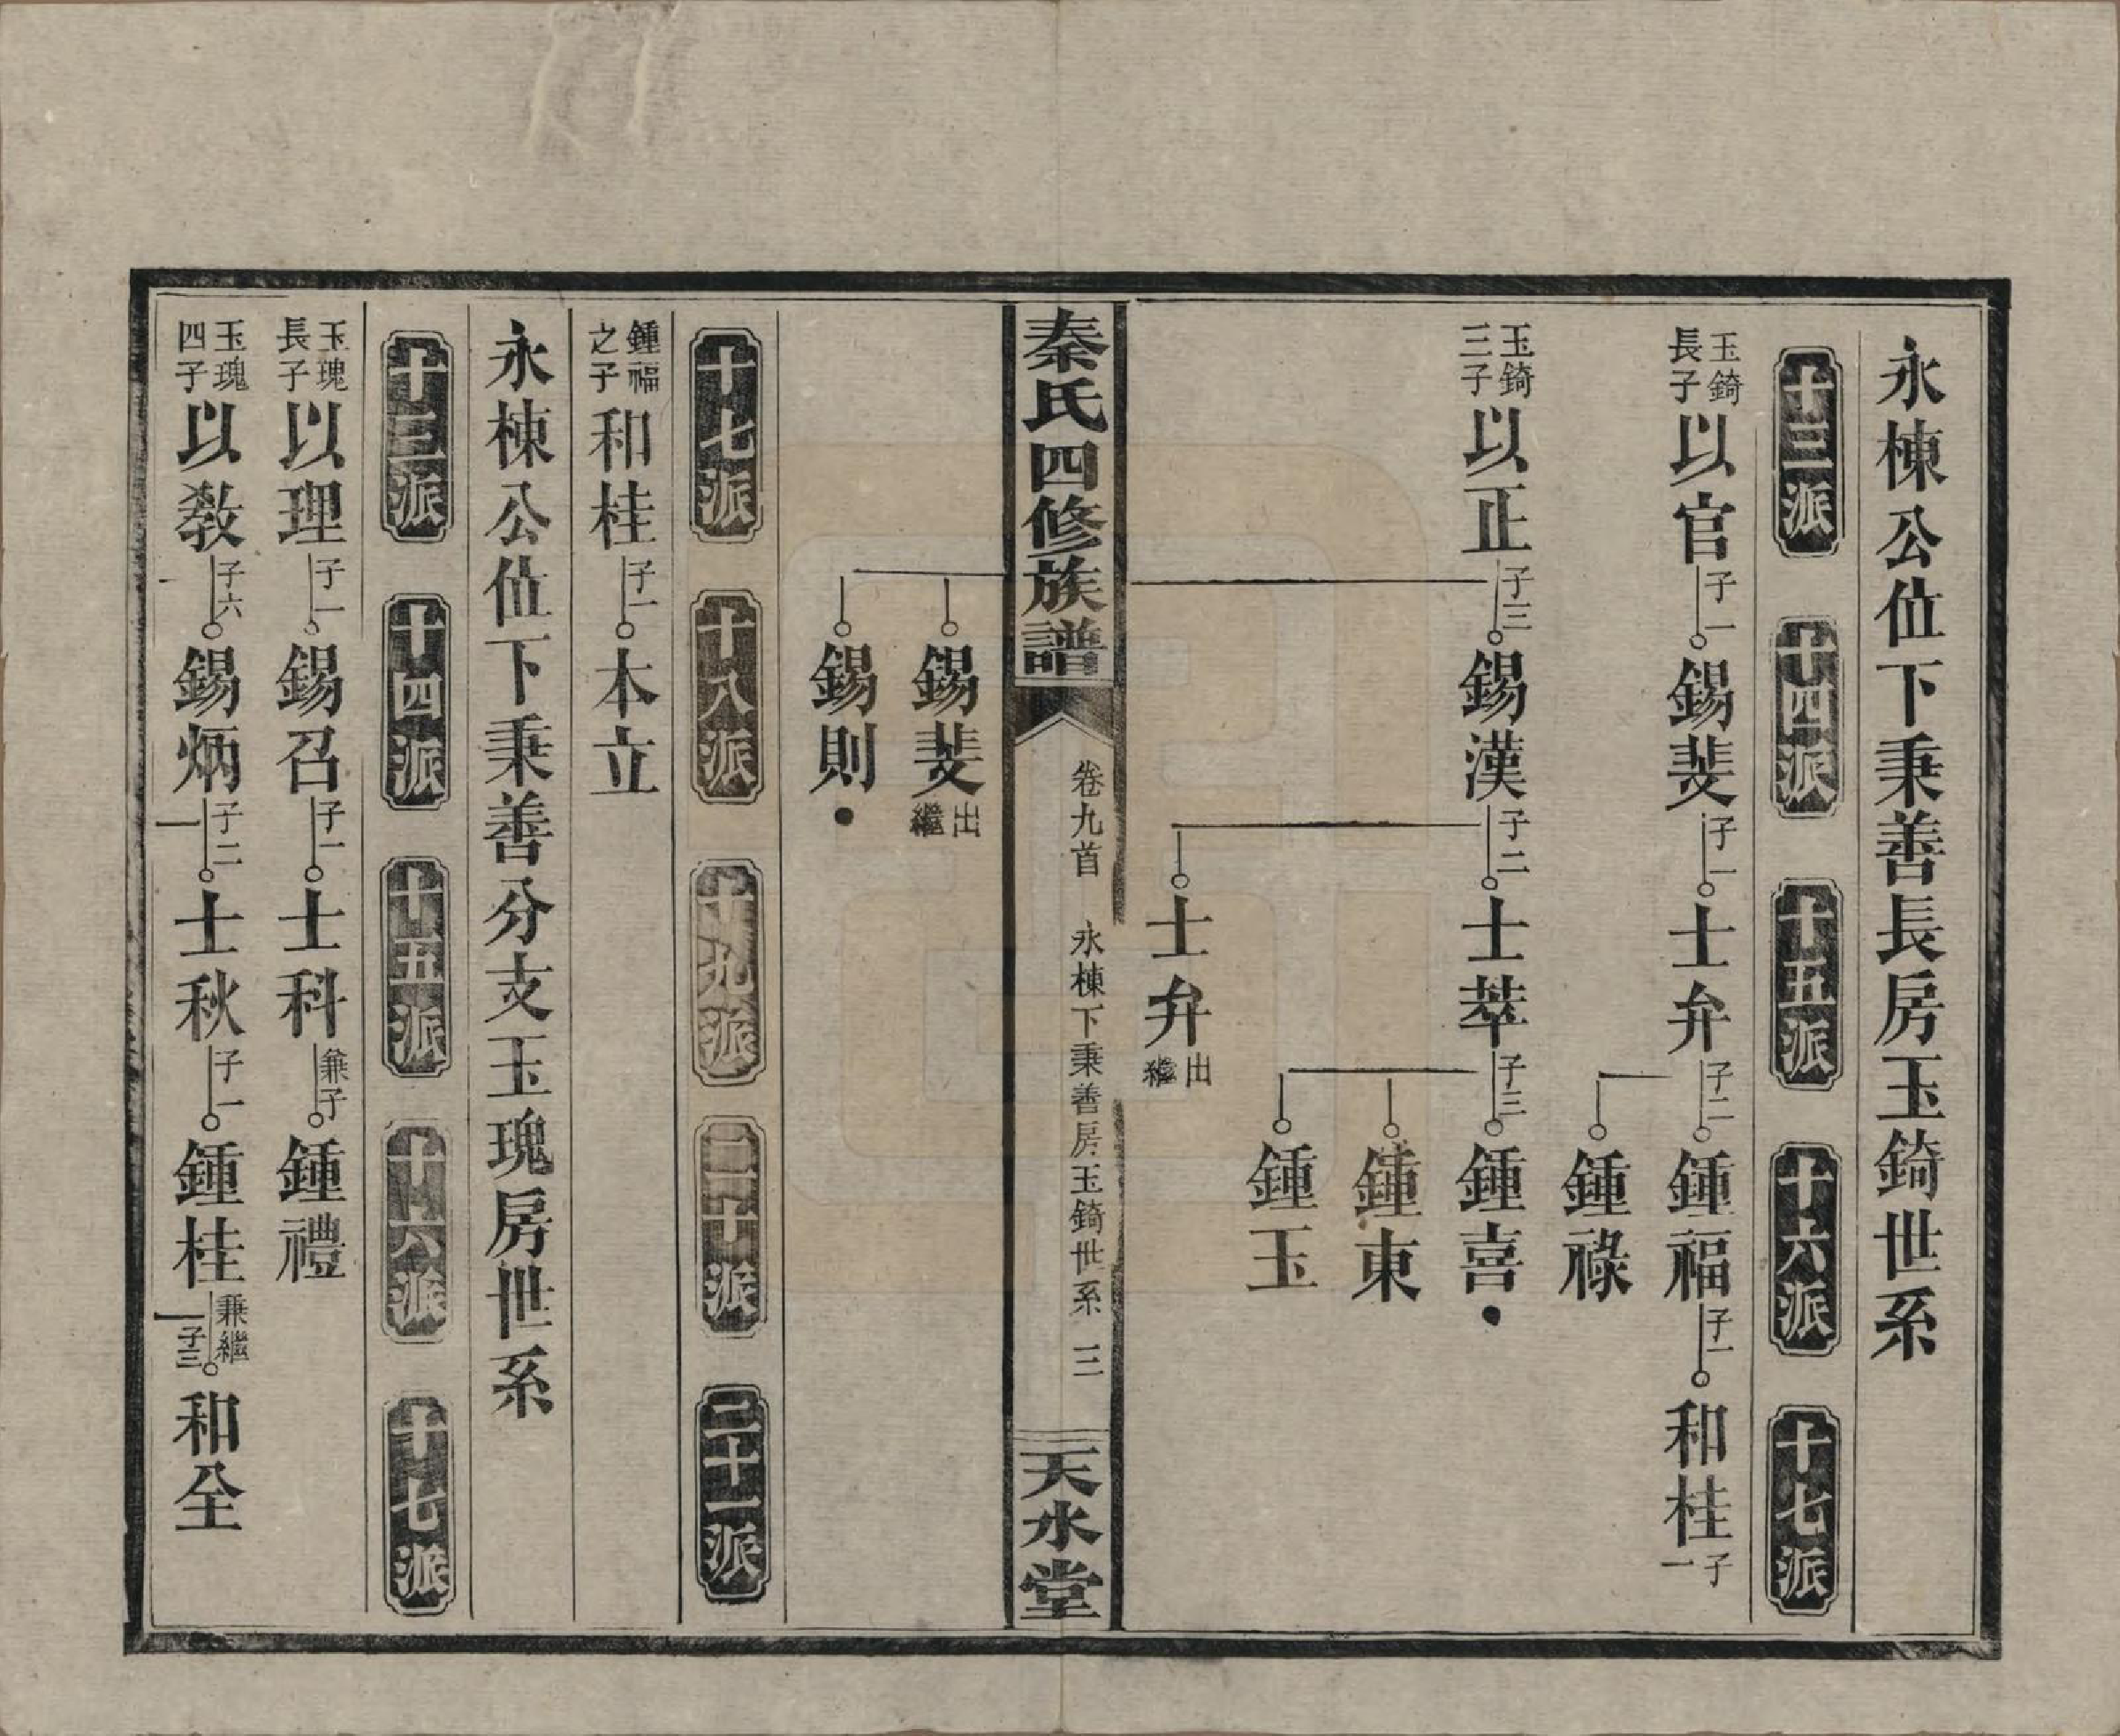 永棟公位下秉善長房玉錡世系
十三派 十四派 十五派 十六派 十七派
玉錡長子 以官 子一 錫斐 子一 士弁 子二 鍾福 子一 和桂 子一
鍾祿
玉錡三子 以正 子三 錫漢 子二 士萃 子三 鍾喜
鍾東
鍾玉
士弁 出繼
秦氏四修族譜 卷九首 永棟下秉善房玉錡世系 三 天水堂
錫斐 出繼
錫則
十七派 十八派 十九派 二十派 二十一派
鍾福之子 和桂 子一 本立
永棟公位下秉善分支玉瑰房世系
十三派 十四派 十五派 十六派 十七派
玉瑰長子 以理 子一 錫召 子一 士科 兼子 鍾禮
玉瑰四子 以教 子六 錫炳 子二 士秋 子一 鍾桂 兼繼子三 和全